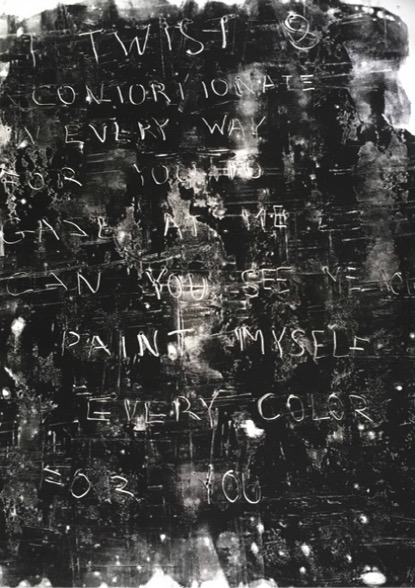 I TWIST &
CONTORTIONATE
N EVERY WAY
FOR YOU TO
GAZE AT ME
CAN YOU SEE ME
PAINT MYSELF
EVERY COLOR
FOR YOU